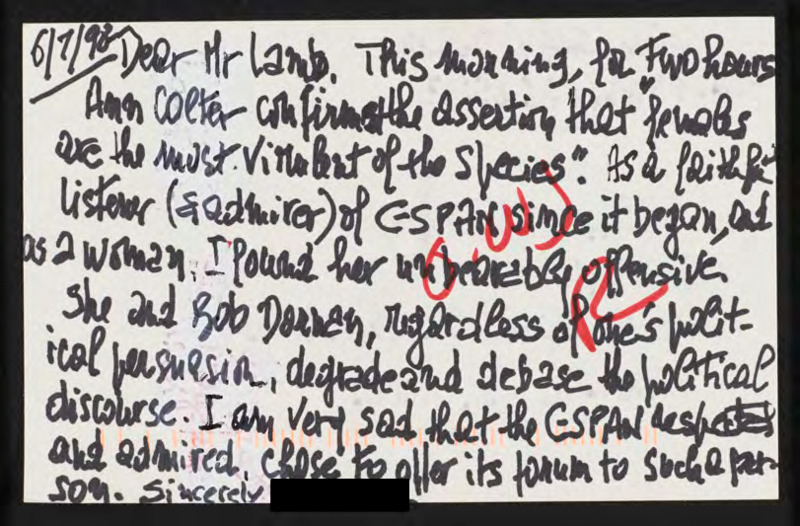 6/7/98 Dear Mr Lamb, This morning, for Two hours
Ann Colter confirmed the assertion that "females
are the most virulent of the species". As a faithful
listener (& admirer) of CSPAN since it began, and
as a woman, I found her unbearably offensive.
She and Bob Dornan, regardless of one's polit-
ical persuasion, degrade and debase the political
discourse. I am very sad that the CSPAN
and admired, chose to offer its forum to such a per-
son. Sincerely